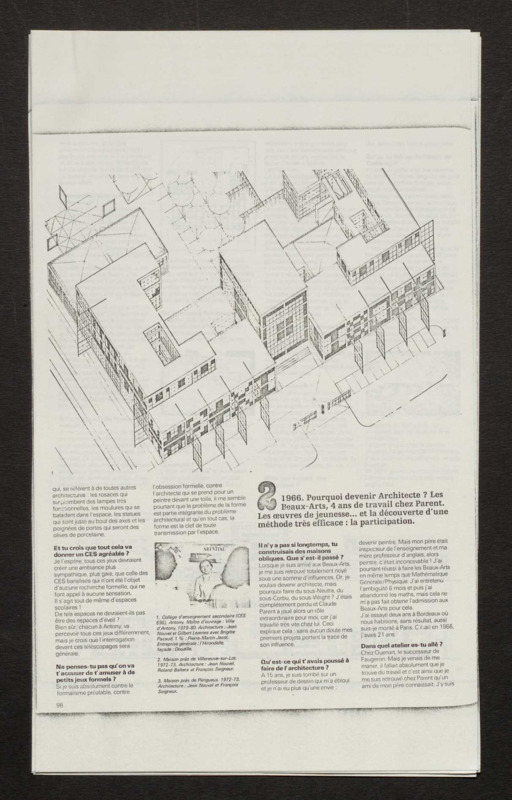 qui, se réfèrent à de toutes autres
architectures : les rosaces qui
surplombent des lampes très
fonctionnelles, les moulures qui se
baladent dans l'espace, les statues
qui sont jusqu'au bout des axes et les
poignées de portes qui seront des
olives de porcelaine.
Et tu crois que tout cela va
donner un CES agréable ?
Je l'espère, tous ces jeux devraient
créer une ambiance plus
sympathique, plus gaie, que celle des
CES banalisés qui n'ont été l'objet
d'aucune recherche formelle, qui ne
font appel à aucune sensation.
Il s'agit tout de même d'espaces
scolaires !
De tels espaces ne devraient-ils pas
être des espaces d'éveil ?
Bien sûr, chacun à Antony, va
percevoir tous ces jeux différemment,
mais je crois que l'interrogation
devant ces télescopages sera
générale.
Ne penses-tu pas qu'on va
t'accuser de t'amuser à de
petits jeux formels ?
Si je suis absolument contre le
formalisme préalable, contre
66
l'obsession formelle, contre
l'architecte qui se prend pour un
peintre devant une toile, il me semble
pourtant que le problème de la forme
est partie intégrante du problème
architectural et qu'en tout cas, la
forme est la clef de toute
transmission par l'espace.
1. Collège d'enseignement secondaire (CES
656), Antony. Maître d'ouvrage : Ville
d'Antony, 1979-80. Architecture : Jean
Nouvel et Gilbert Lezenes avec Brigitte
Parent. 1 % : Pierre-Martin Jacot.
façade :
2. Maison près de Villeneuve-sur-Lot,
1972-73. Architecture : Jean Nouvel,
Roland Baltera et François Seigneur.
3. Maison près de Périgueux, 1972-73.
Architecture : Jean Nouvel et François
Seigneur.
2 1966. Pourquoi devenir Architecte ? Les
Beaux-Arts, 4 ans de travail chez Parent.
Les œuvres de jeunesse... et la découverte d'une
méthode très efficace : la participation.
Il n'y a pas si longtemps, tu
construisais des maisons
obliques. Que s'est-il passé ?
Lorsque je suis arrivé aux Beaux-Arts,
je me suis retrouvé totalement noyé
sous une somme d'influences. Or, je
voulais devenir architecte, mais
pourquoi faire du sous-Neutra, du
sous-Corbu, du sous-Wright ? J'étais
complètement perdu et Claude
Parent a joué alors un rôle
extraordinaire pour moi, car j'ai
travaillé très vite chez lui. Ceci
explique cela : sans aucun doute mes
premiers projets portent la trace de
son influence.
Qu'est-ce qui t'avais poussé à
faire de l'architecture ?
A 15 ans, je suis tombé sur un
professeur de dessin qui m'a ébloui
et je n'ai eu plus qu'une envie :
devenir peintre. Mais mon père était
inspecteur de l'enseignement et ma
mère professeur d'anglais, alors
peintre, c'était inconcevable ! J'ai
pourtant réussi à faire les Beaux-Arts
en même temps que Mathématique
Générale/Physique. J'ai entretenu
l'ambiguïté 6 mois et puis j'ai
abandonné les maths, mais cela ne
m'a pas fait obtenir l'admission aux
Beaux-Arts pour cela.
J'ai essayé deux ans à Bordeaux où
nous habitions, sans résultat, aussi
suis-je monté à Paris. C'était en 1966,
j'avais 21 ans.
Dans quel atelier es-tu allé ?
Chez Ouanian, le successeur de
Faugeron. Mais je venais de me
marier, il fallait absolument que je
trouve du travail et c'est ainsi que je
me suis retrouvé chez Parent qu'un
ami de mon père connaissait. J'y suis